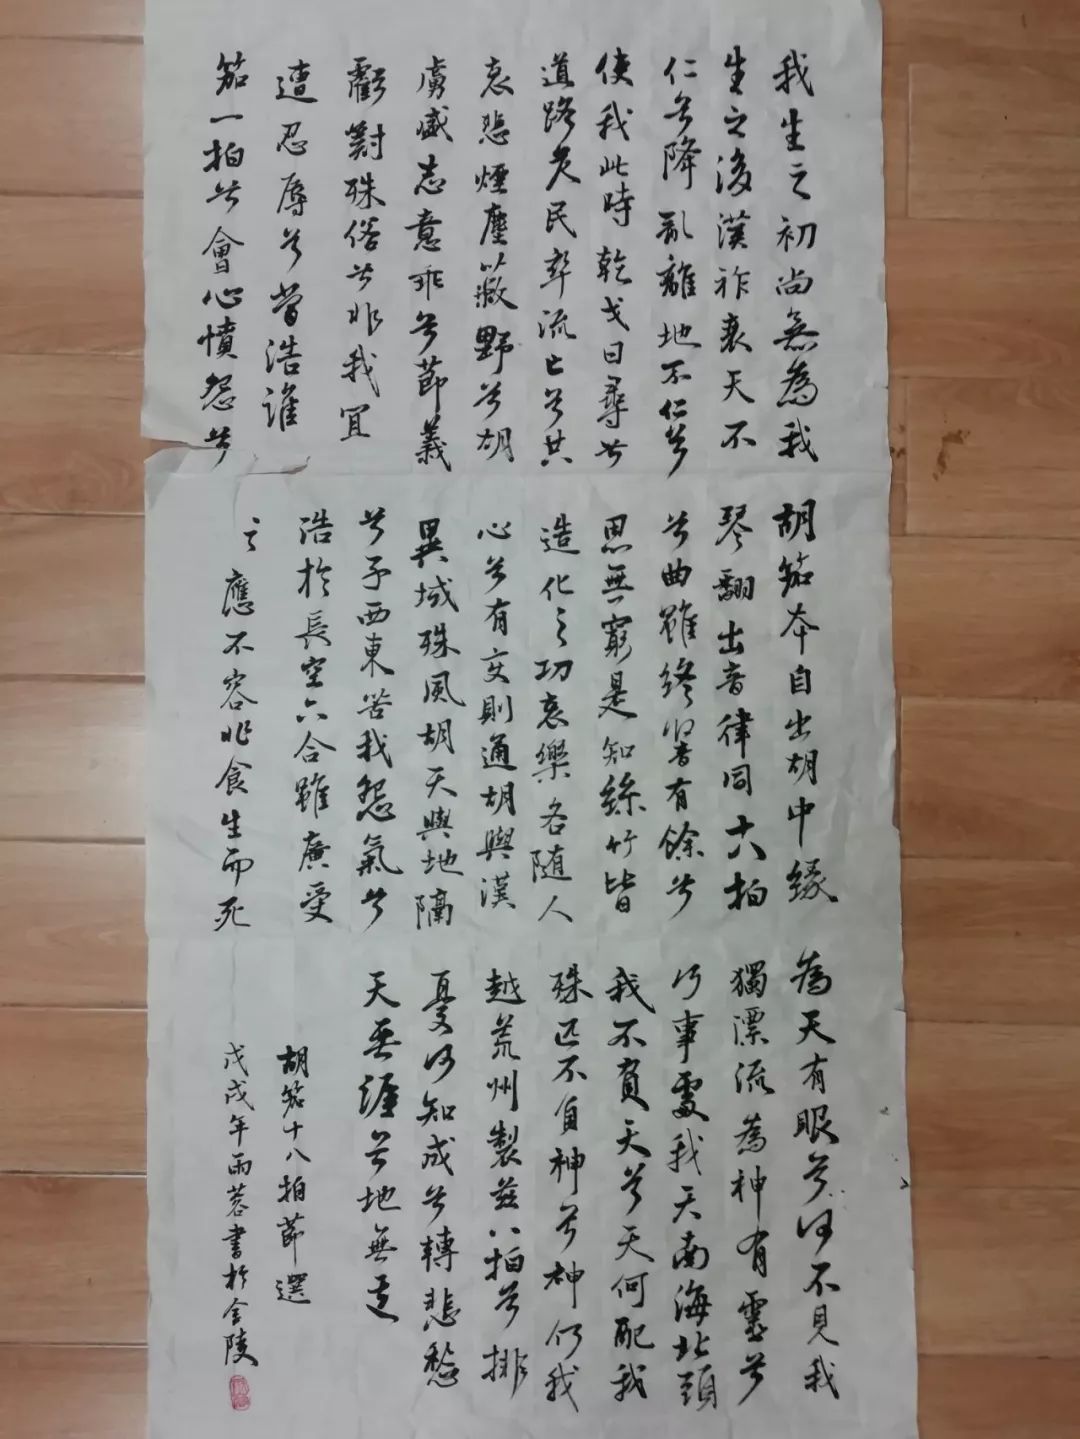 我生之初尚無為我
生之後漢祚衰天不
仁兮降亂離地不仁兮
使我此時乾戈日尋兮
道路危民卒流亡兮共
哀悲煙塵蔽野兮胡
虜盛志意乖兮節義
虧對殊俗兮非我宜
遭忍辱兮當浩誰
笳一拍兮會心憤怨兮
胡笳本自出胡中緣
琴翻出音律同十八拍
兮曲雖終響有餘兮
思無窮是知絲竹皆
造化之功哀樂各隨人
心兮有變則通胡與漢
異域殊風胡天與地隔
兮子西東苦我怨氣兮
浩於長空六合雖廣受
之應不容非食生而死
為天有眼兮何不見我
獨漂流為神有靈兮
何事處我天南海北頭
我不負天兮天何配我
殊匹不負神兮神何我
越荒州製茲八拍兮排
憂何知成兮轉悲愁
天無涯兮地無邊
胡笳十八拍節選
戊戌年雨蓉書於金陵